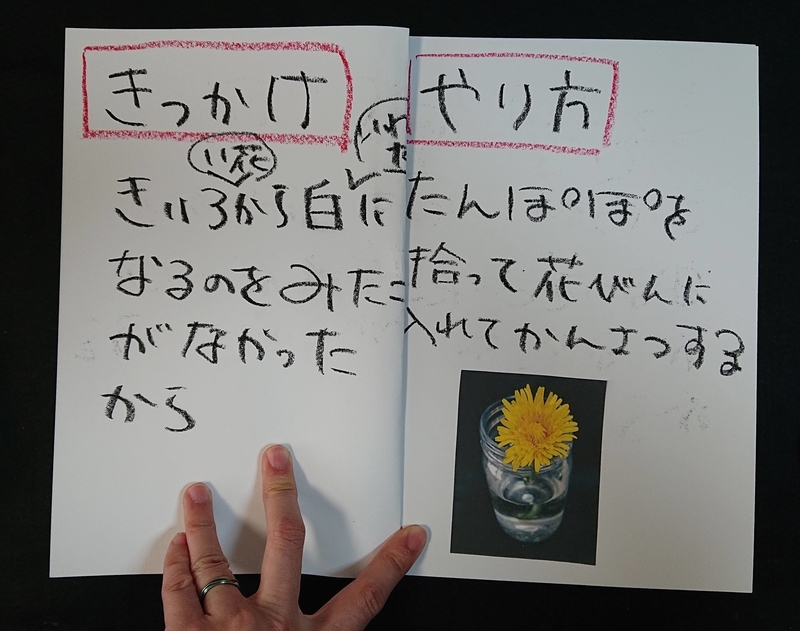 きっかけ
い花
きいろから白に
なるのをみたこ
がなかった
から
やり方
たんぽぽを
拾って花びんに
入れてかんさつする